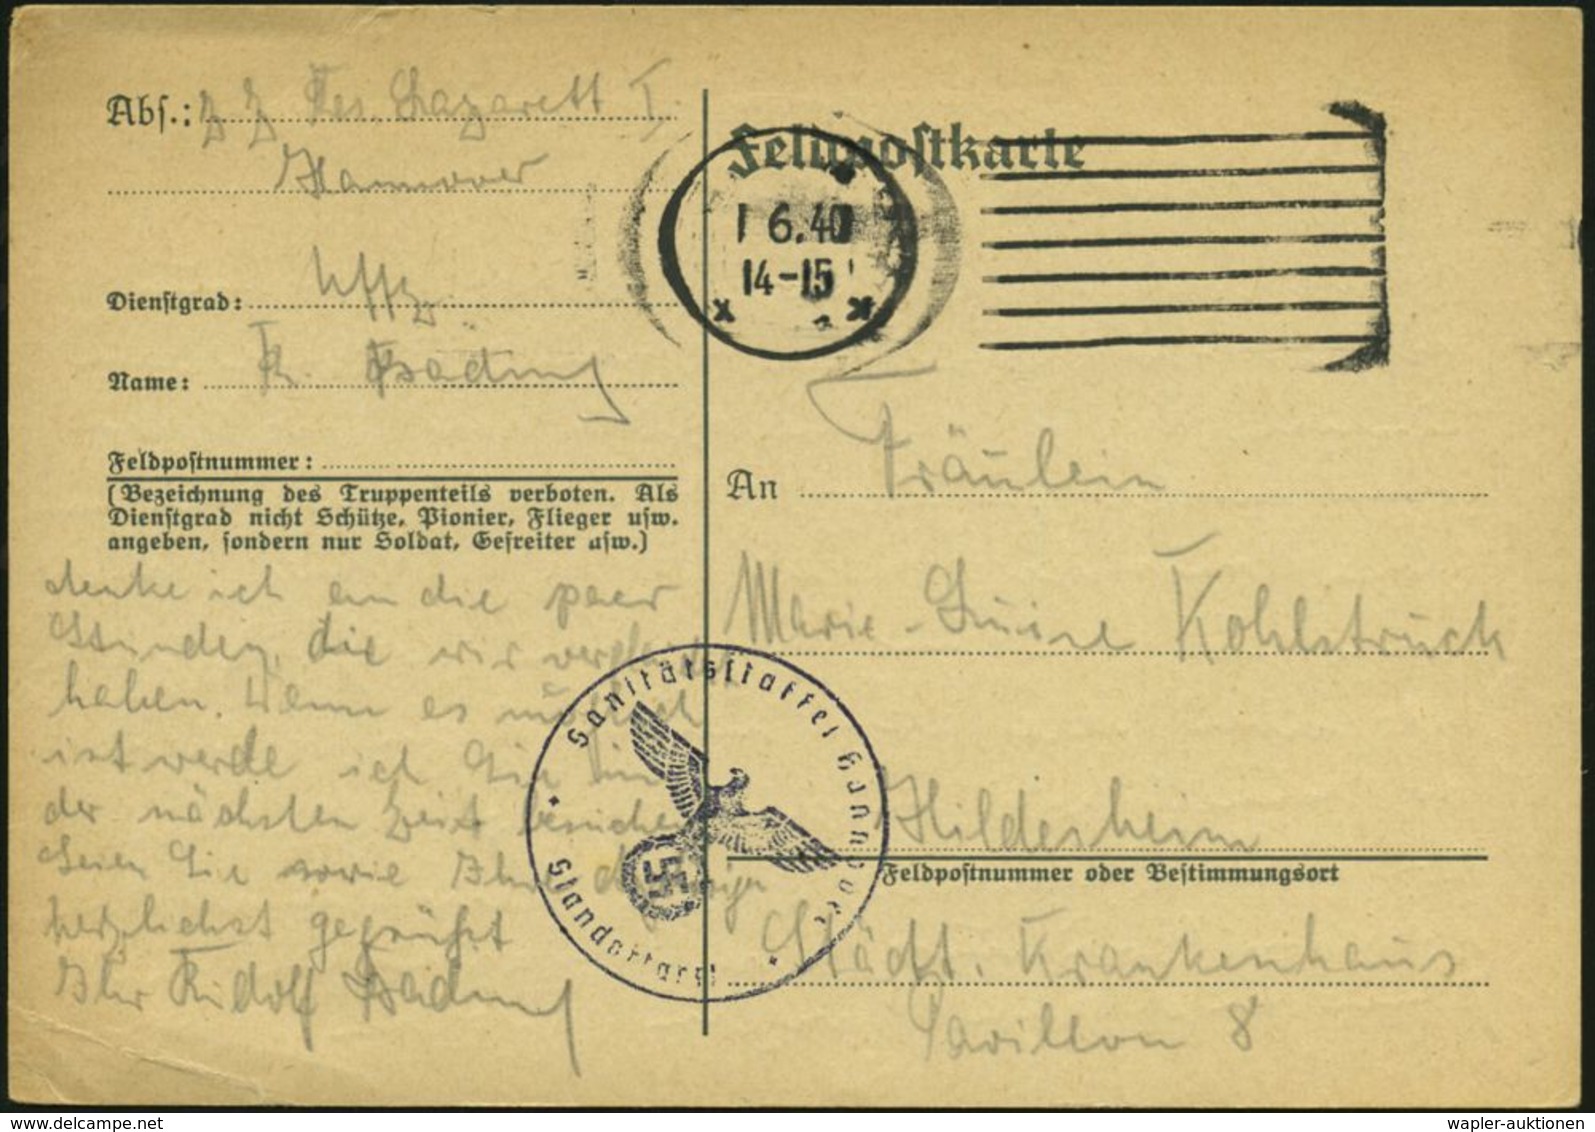 Abs.: z Z Res. Lazarett I.
Hannover
Dienstgrad: Uffz.
Name: R. Bäding
Feldpostnummer:
(Bezeichnung des Truppenteils verboten. Als
Dienstgrad nicht Schütze, Pionier, Flieger usw.
angeben, sondern nur Soldat, Gefreiter usw.)
denke ich an die paar
Stunden, die wir
haben. Wenn es möglich
ist werde ich Sie in
der nächsten Zeit besuchen
Seien Sie sowie Ihre
herzlichst gegrüßt
Ihr Rudolf Bäding
Feldpostkarte
1 6.40
14-15
An Fräulein
Marie-Luise Kohlstruck
Hildesheim
Feldpostnummer oder Bestimmungsort
Städt. Krankenhaus
Pavillon 8
Sanitätsstaffel Hannover
Standortarzt
www.delcampe.net
wapler-auktionen